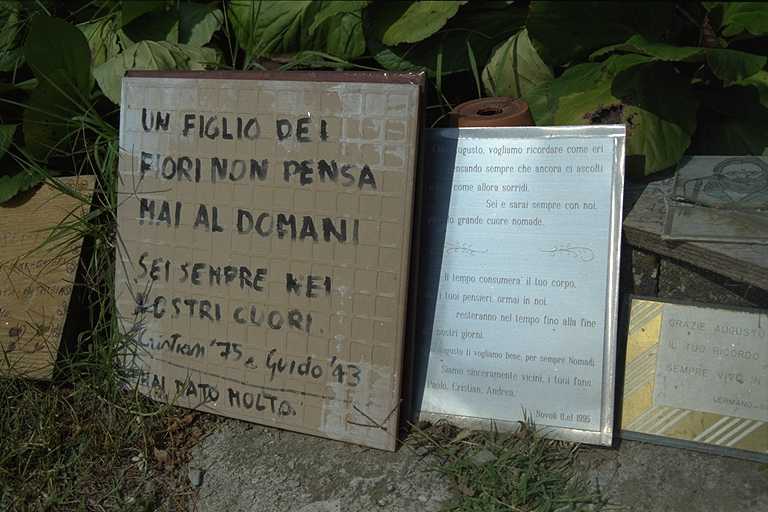 UN FIGLIO DEI
FIORI NON PENSA
MAI AL DOMANI
SEI SEMPRE NEI
NOSTRI CUORI.
Cristian '75 e Guido '43
HAI DATO MOLTO.
Augusto, vogliamo ricordare come eri
pensando sempre che ancora ci ascolti
come allora sorridi.
Sei e sarai sempre con noi,
grande cuore nomade.
Il tempo consumera' il tuo corpo,
i tuoi pensieri, ormai in noi,
resteranno nel tempo fino alla fine
nostri giorni.
Augusto ti vogliamo bene, per sempre Nomadi
Siamo sinceramente vicini, i tuoi fans
Paolo, Cristian, Andrea.
Novoli 1995
GRAZIE AUGUSTO
IL TUO RICORDO
SEMPRE VIVO IN